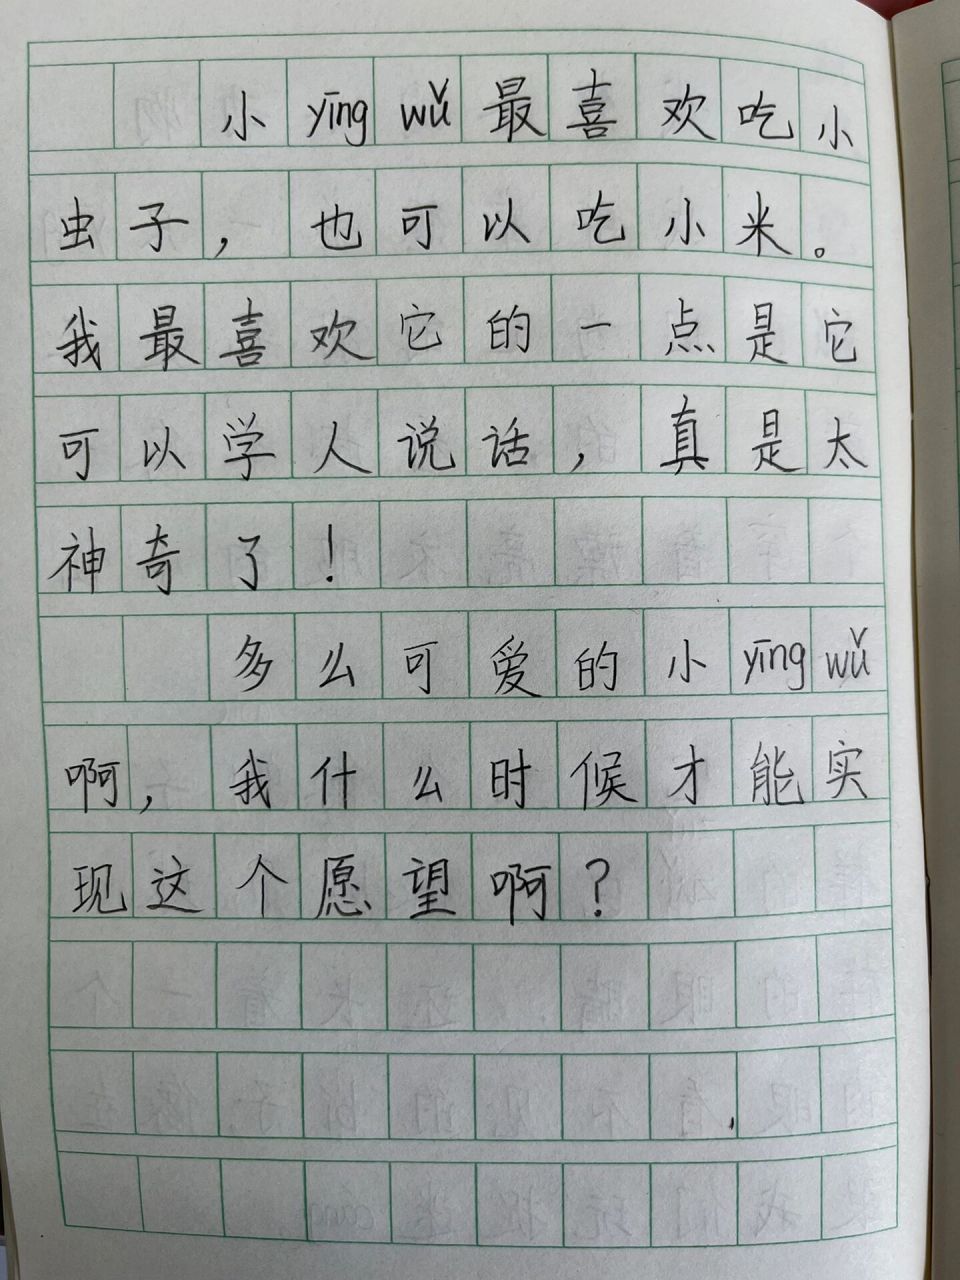 小yīng wǔ最喜欢吃小
虫子，也可以吃小米。
我最喜欢它的一点是它
可以学人说话，真是太
神奇了！
多么可爱的小yīng wǔ
啊，我什么时候才能实
现这个愿望啊？